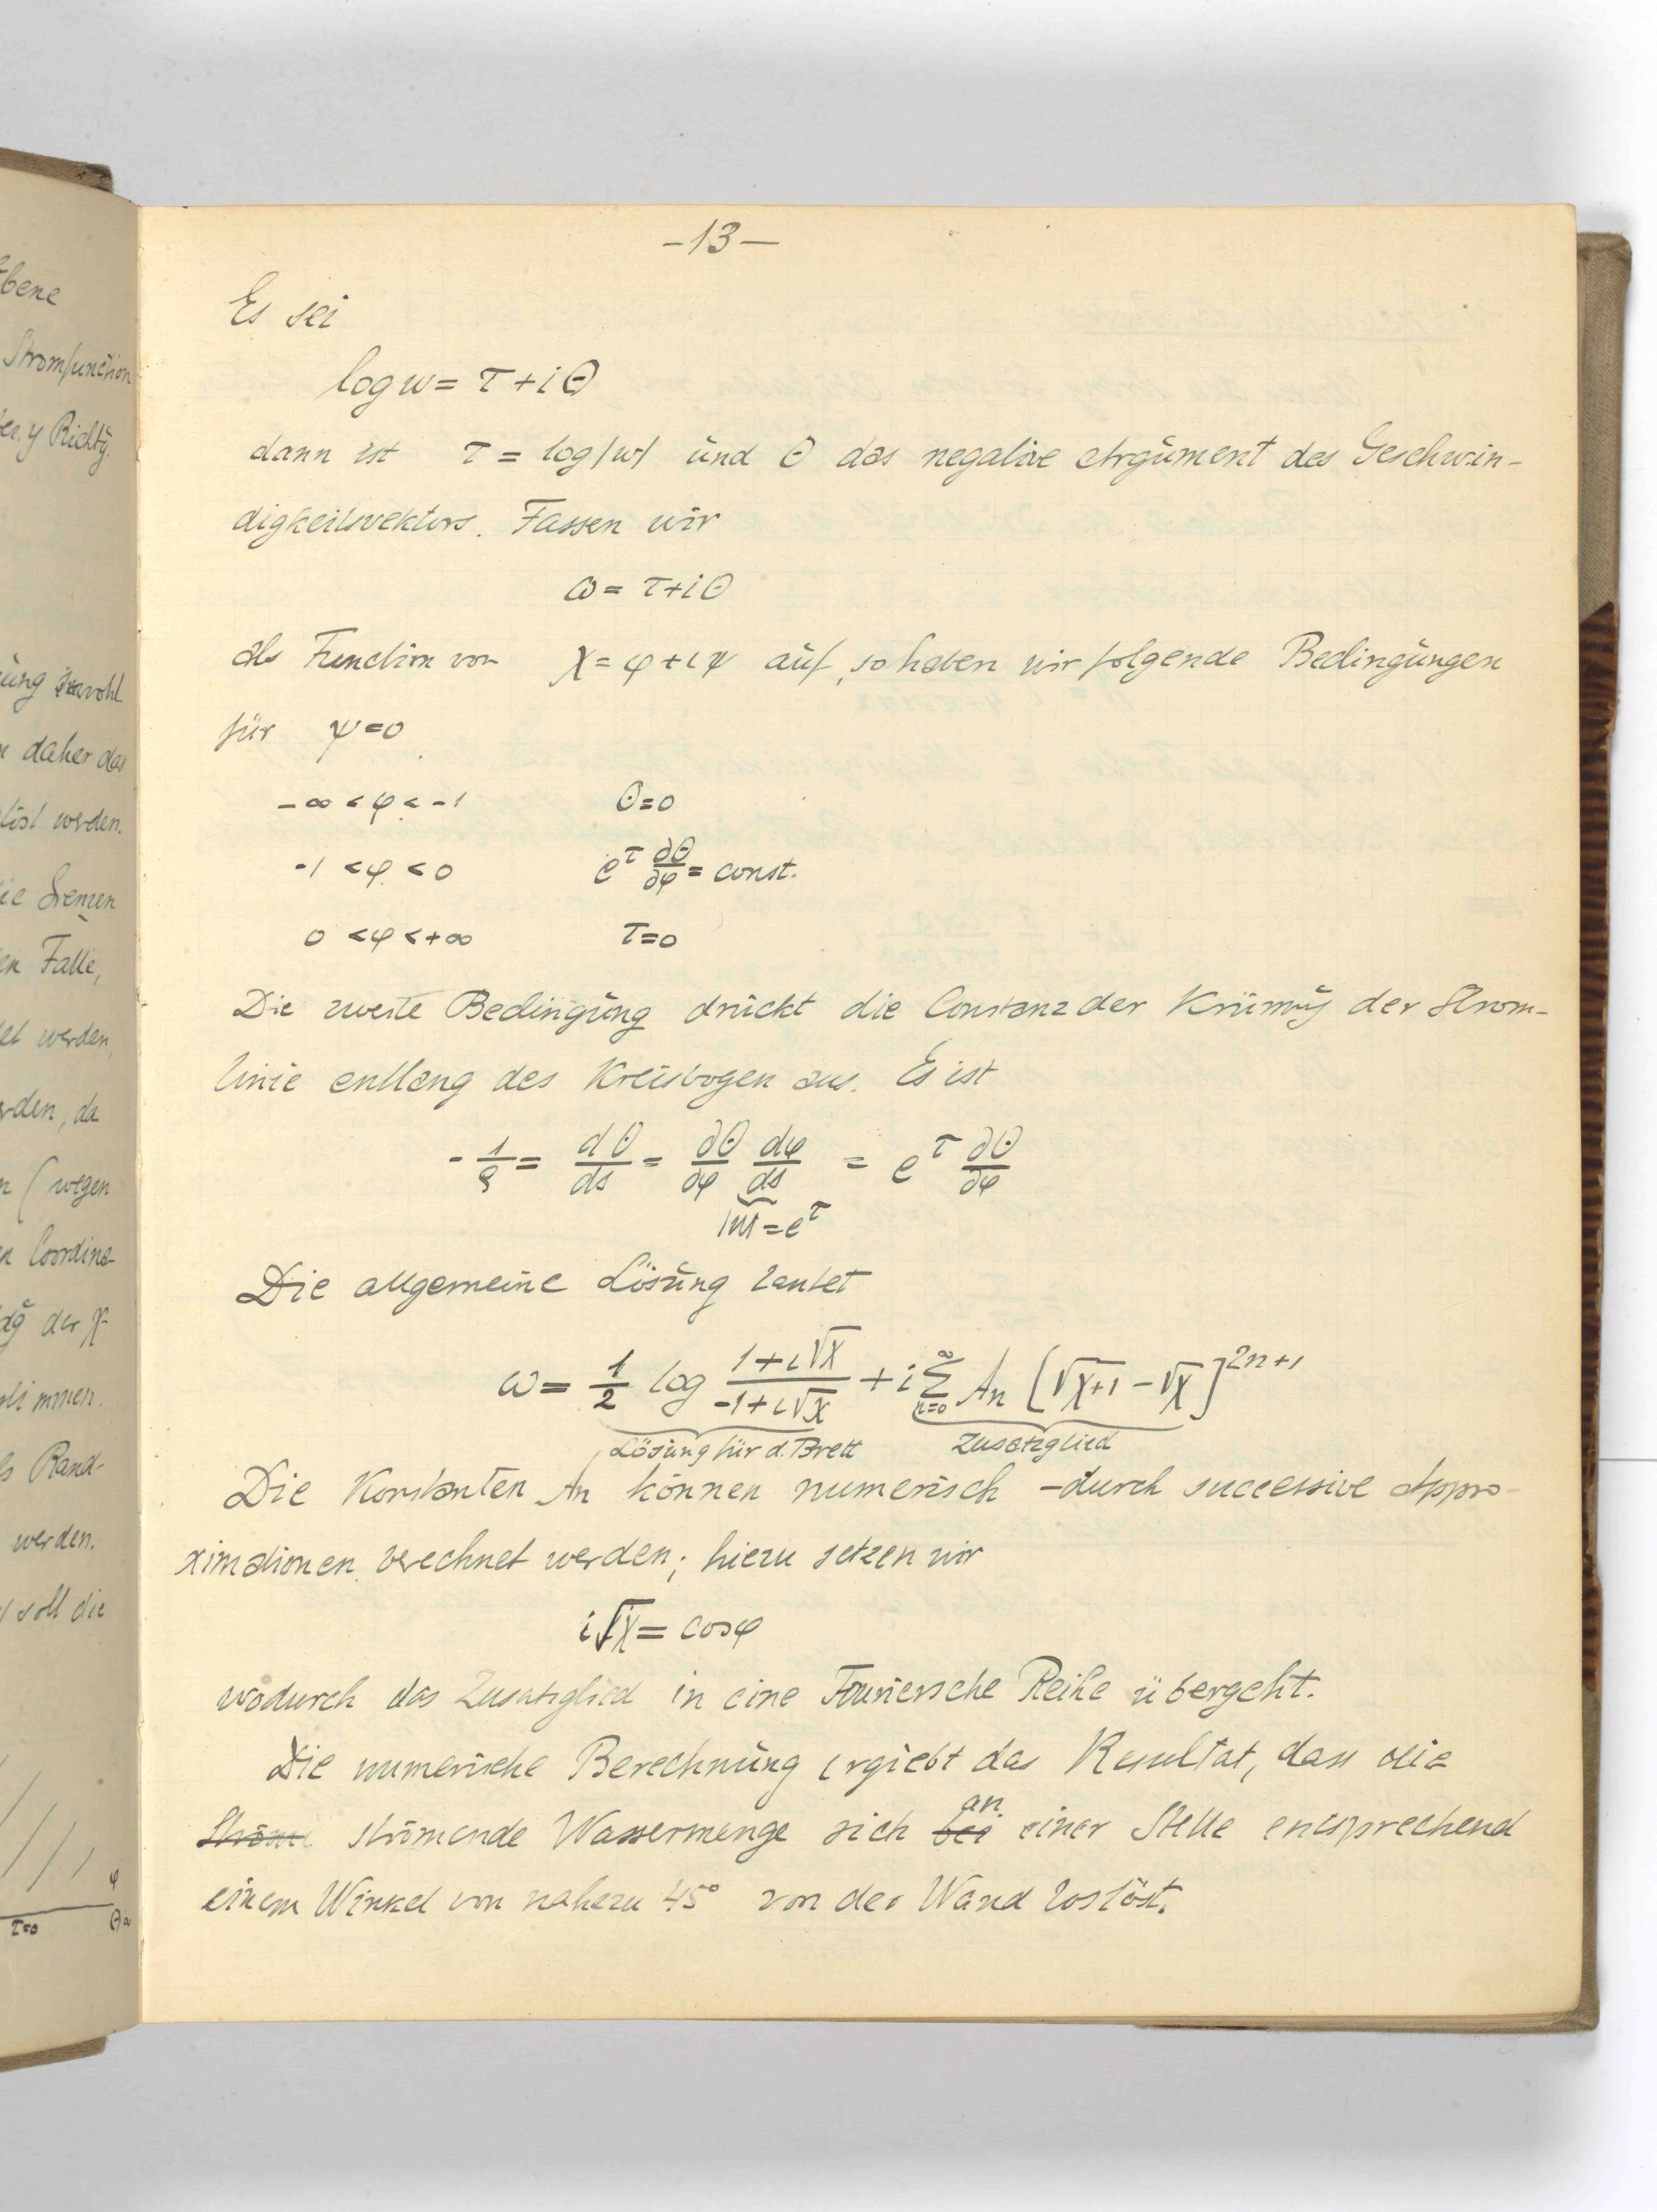 -13-
Es sei
log w = τ + iΘ
dann ist τ = log|w| und Θ das negative Argument des Geschwin-
digkeitsvektors. Fassen wir
ω = τ+iΘ
als Function von χ = φ + iψ auf, so haben wir folgende Bedingungen
für ψ=0
-∞ < φ < -1 Θ=0
-1 < φ < 0 e^τ ∂Θ/∂φ = const.
0 < φ < +∞ τ=0
Die zweite Bedingung drückt die Constanz der Krümmg der Strom-
linie entlang des Kreisbogen aus. Es ist
- 1/ρ = dΘ/ds = ∂Θ/∂φ dφ/ds = e^τ ∂Θ/∂φ
|w| = e^τ
Die allgemeine Lösung lautet
ω = 1/2 log (1+i√χ)/(-1+i√χ) + i ∑_{n=0}^{∞} An [√χ+1 - √χ]^{2n+1}
Lösung für d. Brett Zusatzglied
Die Konstanten An können numerisch - durch successive Appro-
ximationen berechnet werden; hiezu setzen wir
i√χ = cosφ
wodurch das Zusatzglied in eine Fouriersche Reihe übergeht.
Die numerische Berechnung ergiebt das Resultat, dass die
Ströme strömende Wassermenge sich bei an einer Stelle entsprechend
einem Winkel von nahezu 45° von der Wand loslöst.
bene
Stromfunction
y Richtg.
ung sowohl
daher das
werden.
ie Grenzen
en Falle,
et werden,
rden, da
(wegen
Coordina-
der χ-
Rand-
werden.
soll die
φ
τ=0